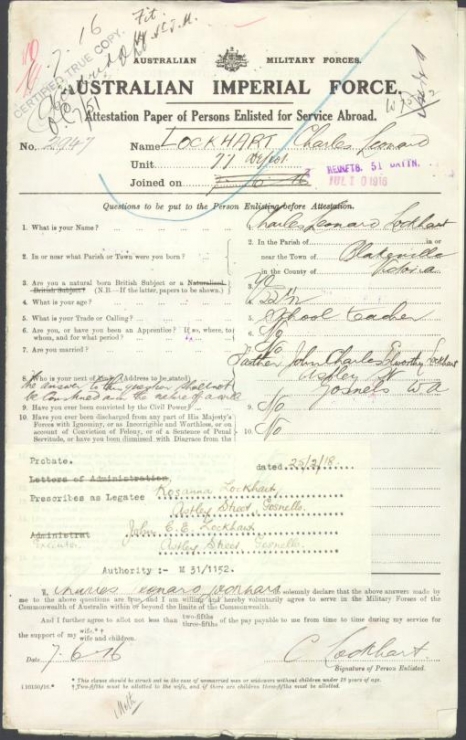 Fit.
7.7.16
CERTIFIED TRUE COPY.
AUSTRALIAN MILITARY FORCES.
AUSTRALIAN IMPERIAL FORCE.
Attestation Paper of Persons Enlisted for Service Abroad.
No. 2947 Name LOCKHART Charles Leonard
Unit 77 Depot.
Joined on 7-6-16 REINFTS. 51 BATTN.
1916
Questions to be put to the Person Enlisting before Attestation.
1. What is your Name? 1. Charles Leonard Lockhart
2. In or near what Parish or Town were you born? 2. In the Parish of in or
near the Town of Blakeville
in the County of Victoria
3. Are you a natural born British Subject or a Naturalised British Subject? (N.B.—If the latter, papers to be shown.) 3. Yes
4. What is your age? 4. 22
5. What is your Trade or Calling? 5. School Teacher
6. Are you, or have you been an Apprentice? If so, where, to whom, and for what period? 6. No
7. Are you married? 7. No
8. Who is your next of kin? (Address to be stated) 8. Father John Charles Lockhart
Astley St
Gosnells W A
the answer to this question shall not
be construed as in the nature of a will
9. Have you ever been convicted by the Civil Power? 9. No
10. Have you ever been discharged from any part of His Majesty's Forces with Ignominy, or as Incorrigible and Worthless, or on account of Conviction of Felony, or of a Sentence of Penal Servitude, or have you been dismissed with Disgrace from the 10. No
Probate.
Letters of Administration, dated 25/2/18.
Prescribes as Legatee Rosanna Lockhart,
Astley Street, Gosnells.
Administrat John C. E. Lockhart
Executor Astley Street, Gosnells.
Authority :- M 31/1152.
I, Charles Leonard Lockhart solemnly declare that the above answers made by
me to the above questions are true, and I am willing and hereby voluntarily agree to serve in the Military Forces of the
Commonwealth of Australia within or beyond the limits of the Commonwealth.
And I further agree to allot not less than two-fifths three-fifths of the pay payable to me from time to time during my service for
the support of my wife.*† wife and children.
Date 7-6-16 C Lockhart.
Signature of Person Enlisted.
* This clause should be struck out in the case of unmarried men or widowers without children under 18 years of age.
† Two-fifths must be allotted to the wife, and if there are children three-fifths must be allotted.